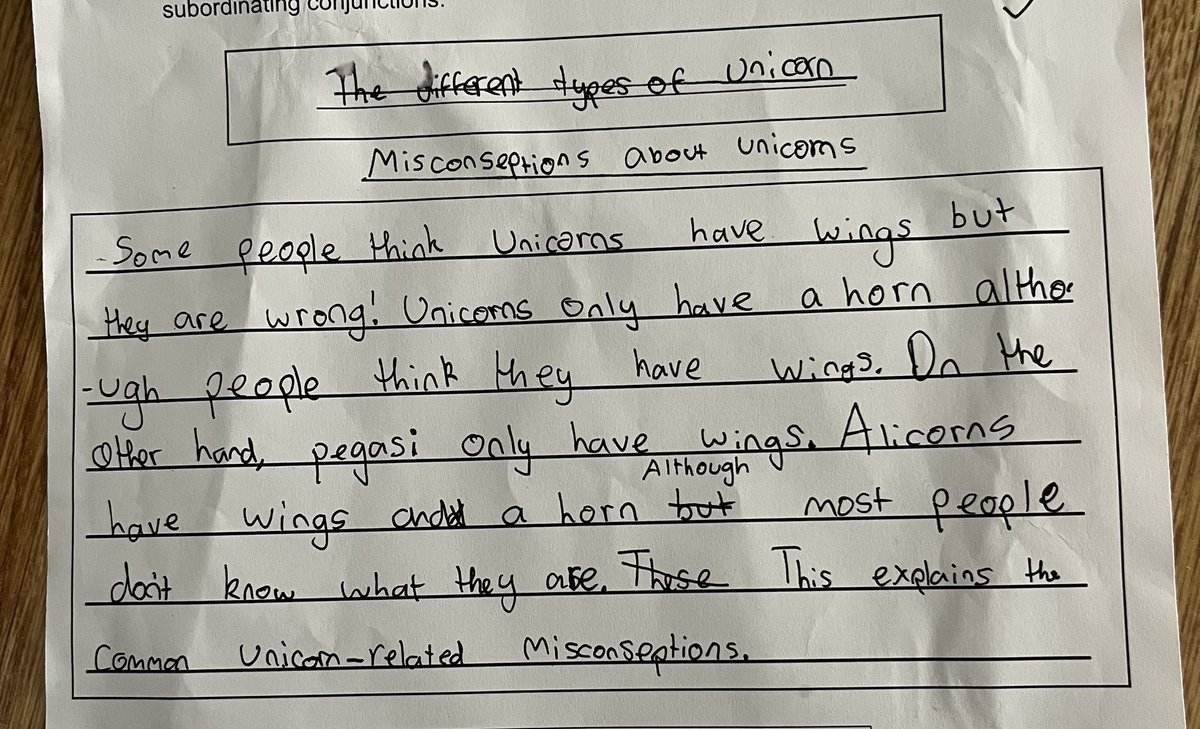 subordinating conjunctions.
The different types of Unicorn
Misconseptions about unicorns
Some people think Unicorns have wings but
they are wrong! Unicorns only have a horn altho
-ugh people think they have wings. On the
Other hand, pegasi only have wings. Alicorns
Although
have wings and a horn but most people
don't know what they are. These This explains the
Common Unicorn-related Misconseptions.